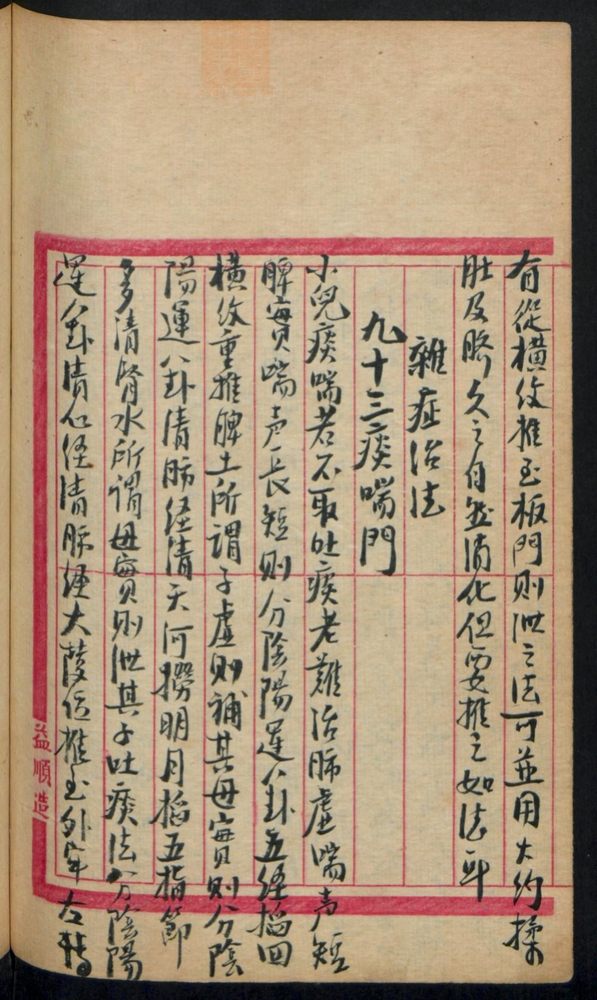 有從橫紋推至板門則泄之法可並用大約揉
肚及臍久之自然消化但要推之如法耳
雜症治法
九十三痰喘門
小兒痰喘若不取吐痰老難治肺虛喘声短
脾實喘声長短則分陰陽運八卦五経掐四
橫紋重推脾土所謂子虛則補其母實則分陰
陽運八卦清肺経清天河撈明月掐五指節
多清腎水所謂母實則泄其子吐痰法分陰陽
運八卦清心経清肺経大陵位推至外牢左轉
益順造